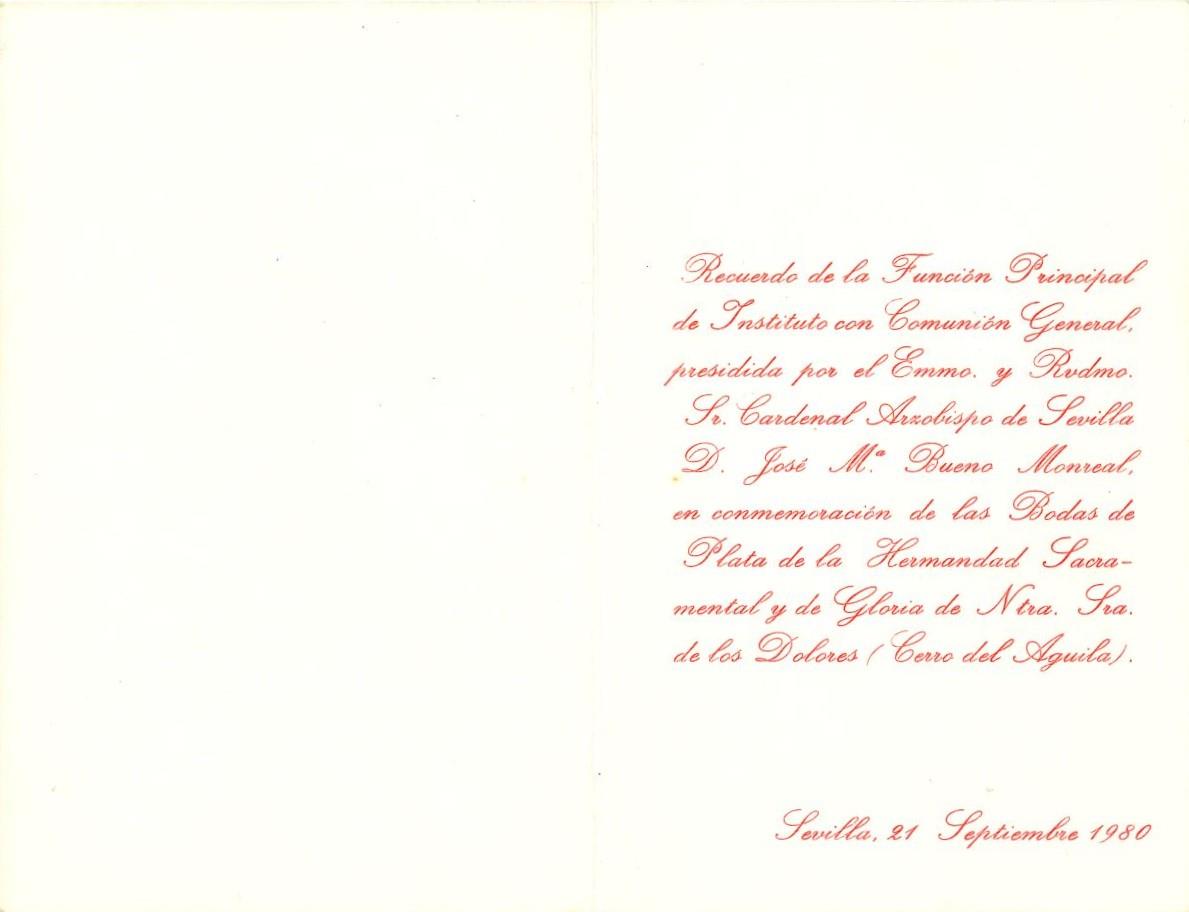 Recuerdo de la Función Principal
de Instituto con Comunión General,
presidida por el Emmo. y Rvdmo.
Sr. Cardenal Arzobispo de Sevilla
D. José M.ª Bueno Monreal,
en conmemoración de las Bodas de
Plata de la Hermandad Sacra-
mental y de Gloria de Ntra. Sra.
de los Dolores (Cerro del Aguila).
Sevilla, 21 Septiembre 1980